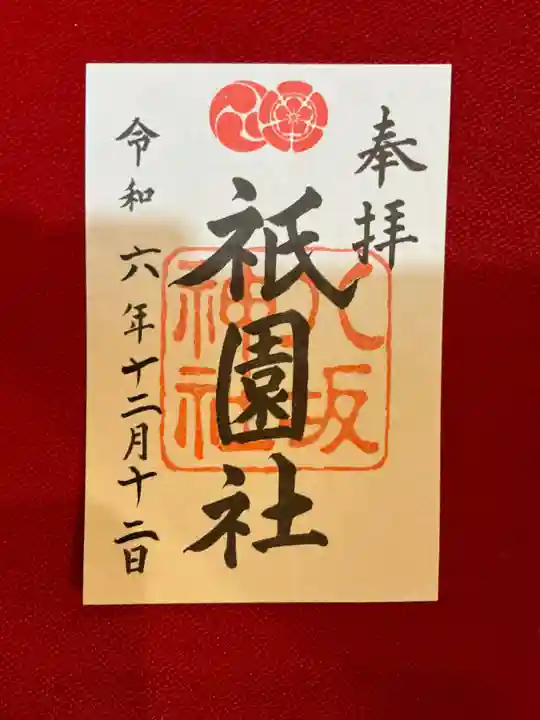 奉拝
八坂
神社
祇園社
令和六年十二月十二日